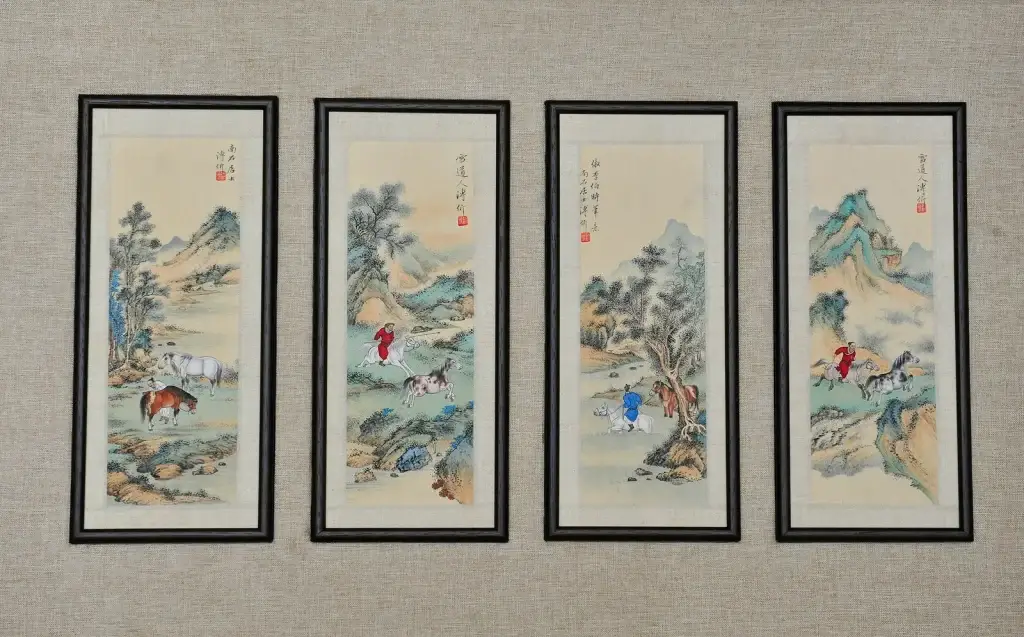 南石居士
溥伒
雪道人溥伒
倣李伯時筆意
南石居士溥伒
雪道人溥伒